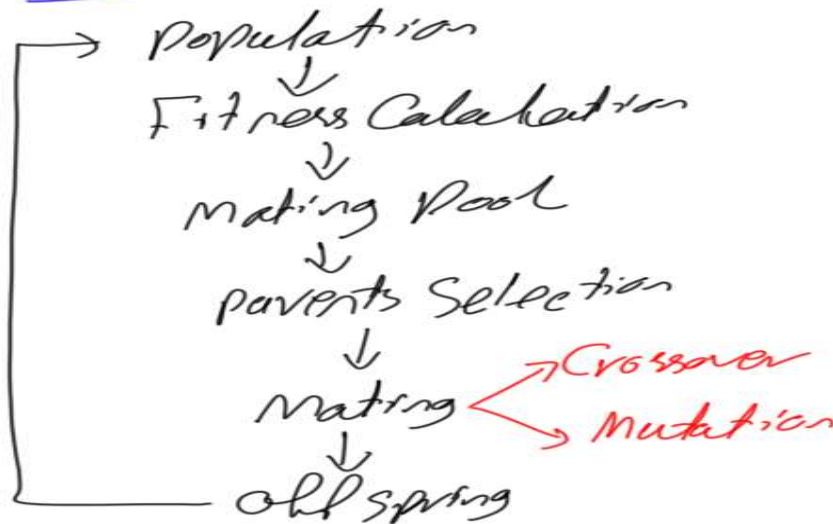 Population
Fitness Calculation
Mating Pool
Parents Selection
Crossover
Mating
Mutation
Offspring